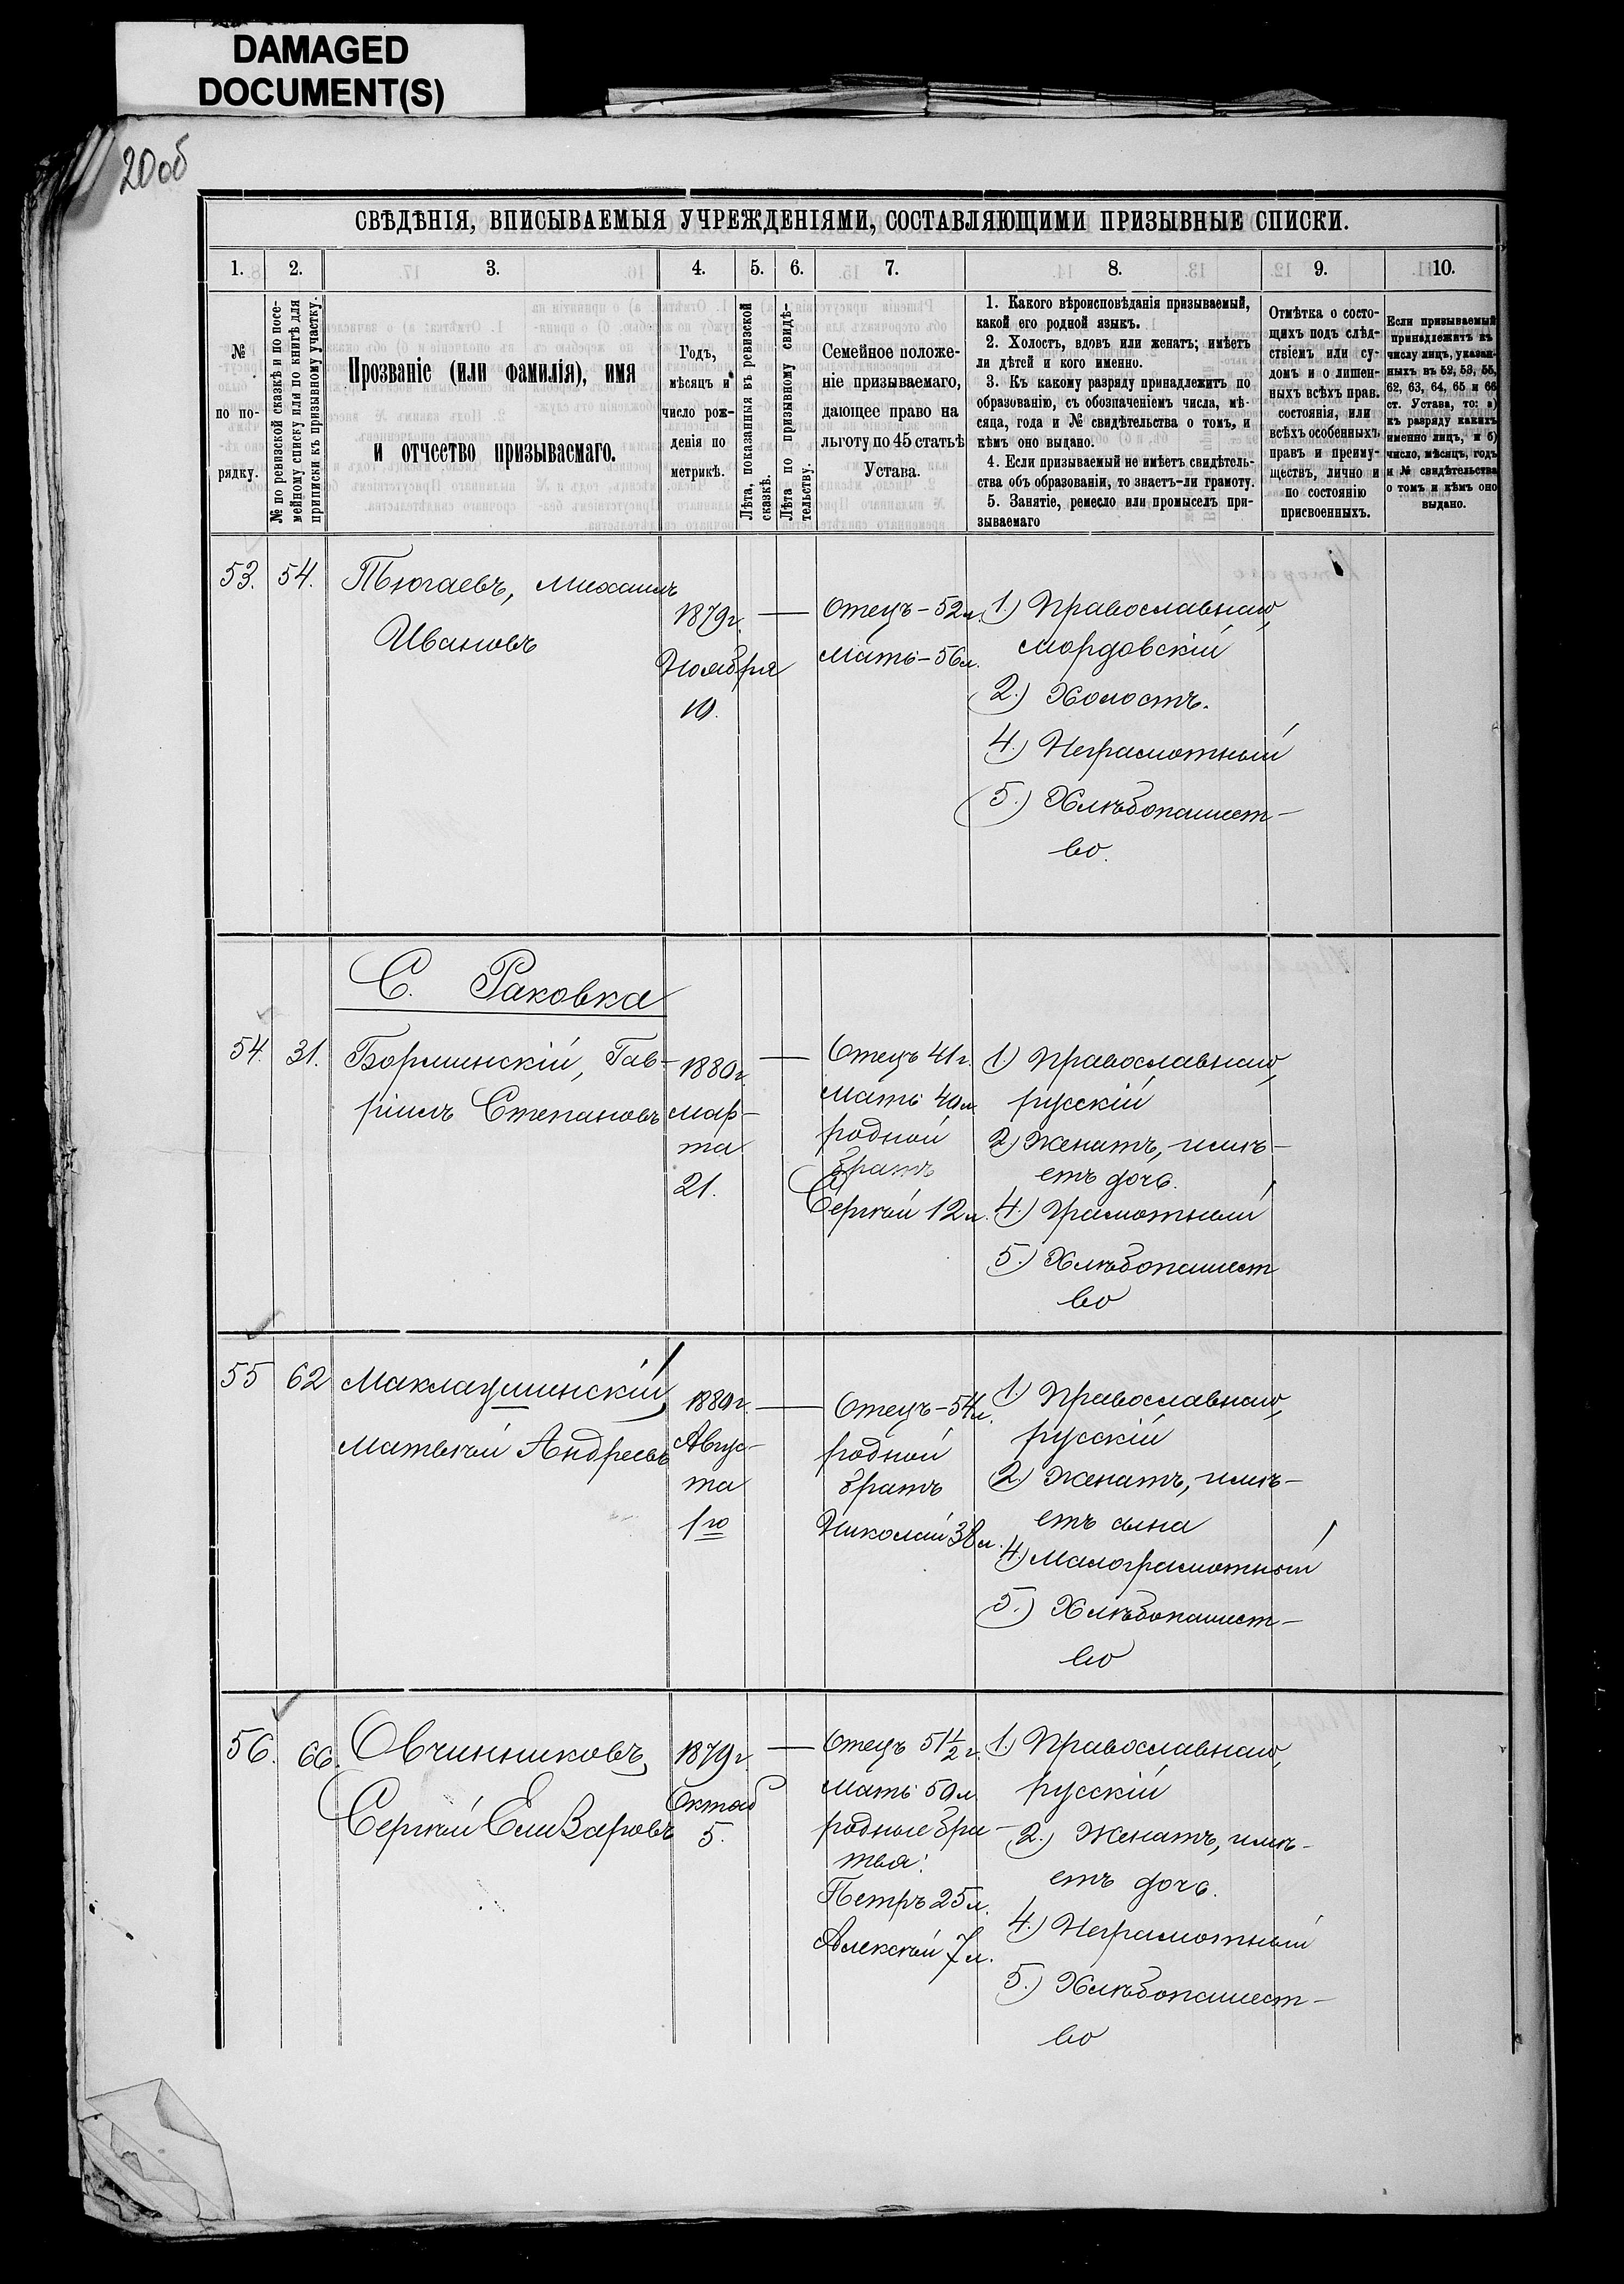 DAMAGED
DOCUMENT(S)
20об
СВѢДѢНІЯ, ВПИСЫВАЕМЫЯ УЧРЕЖДЕНІЯМИ, СОСТАВЛЯЮЩИМИ ПРИЗЫВНЫЕ СПИСКИ.
1. 2. 3. 4. 5. 6. 7. 8. 9. 10.
№
по по-
рядку.
№ по ревизской сказкѣ и по посе-
мейному списку или по книгѣ для
приписки къ призывному участку.
Прозваніе (или фамилія), имя
и отчество призываемаго.
Годъ,
мѣсяцъ и
число рож-
денія по
метрикѣ.
Лѣта, показанныя въ ревизской
сказкѣ.
Лѣта по призывному свидѣ-
тельству.
Семейное положе-
ніе призываемаго,
дающее право на
льготу по 45 статьѣ
Устава.
1. Какого вѣроисповѣданія призываемый,
какой его родной языкъ.
2. Холостъ, вдовъ или женатъ; имѣетъ
ли дѣтей и кого именно.
3. Къ какому разряду принадлежитъ по
образованію, съ обозначеніемъ числа, мѣ-
сяца, года и № свидѣтельства о томъ, и
кѣмъ оно выдано.
4. Если призываемый не имѣетъ свидѣтель-
ства объ образованіи, то знаетъ-ли грамоту.
5. Занятіе, ремесло или промыселъ при-
зываемаго
Отмѣтка о состо-
щихъ подъ слѣд-
ствіемъ или су-
домъ и о лишен-
ныхъ всѣхъ прав.
состоянія, или
всѣхъ особенныхъ
правъ и преиму-
ществъ, лично и
по состоянію
присвоенныхъ.
Если призываемый
принадлежитъ къ
числу лицъ, указан-
ныхъ въ 52, 53, 55,
62, 63, 64, 65 и 66
ст. Устава, то: а)
къ разряду какихъ
именно лицъ, и б)
число, мѣсяцъ, годъ
и № свидѣтельства
о томъ и кѣмъ оно
выдано.
53. 54. Тюгаевъ, Михаилъ
Ивановъ
1879г.
Ноября
10.
Отецъ-52л.
мать-56л.
1.) Православнаго,
мордовскій
2.) Холостъ.
4.) Неграмотный
5.) Хлѣбопашест-
во.
С. Раковка
54. 31. Борминскій, Гав-
ріилъ Степановъ
1880г.
мар-
та
21.
Отецъ 41г.
мать 40л.
родной
братъ
Сергѣй 12л.
1.) Православнаго,
русскій
2.) Женатъ, имѣ-
етъ дочь.
4.) Грамотный
5.) Хлѣбопашест
во
55 62 Маклаушинскій,
Матвѣй Андреевъ
1880г.
Авгус-
та
1го
Отецъ-54л.
родной
братъ
Николай 38л.
1.) Православнаго,
русскій
2.) Женатъ, имѣ-
етъ сына
4.) Малограмотный
5.) Хлѣбопашест-
во
56. 66. Овчинниковъ,
Сергѣй Елизаровъ
1879г.
Октяб
5.
Отецъ 51½г.
мать 50л.
родные бра-
тья:
Петръ 25л.
Алексѣй 7л.
1.) Православнаго,
русскій
2.) Женатъ, имѣ-
етъ дочь.
4.) Неграмотный
5.) Хлѣбопашест-
во